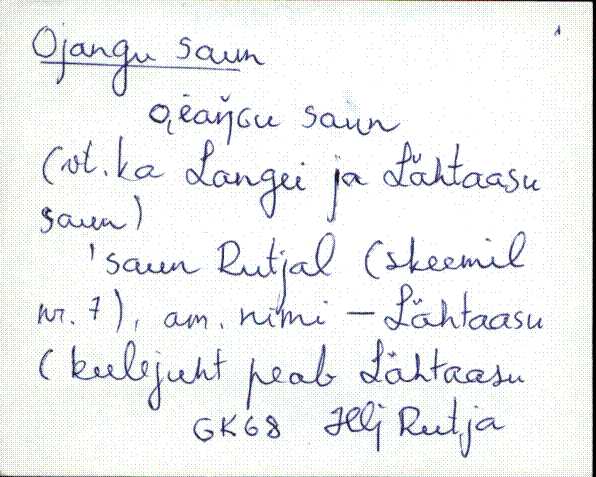 Ojangu saun
o̭ėaŋ̆Gu saun
(vt. ka Langei ja Lähtaasu
saun)
'saun Rutjal (skeemil
nr. 7), am. nimi – Lähtaasu
(keelejuht peab Lähtaasu
GK68 Hlj Rutja